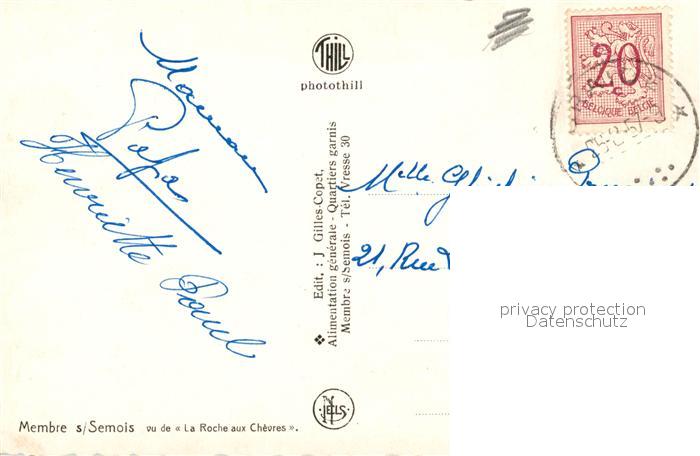 Maman
Papa
Henriette Paul
THILL
photothill
❖ Edit. : J Gilles-Copet,
Alimentation générale - Quartiers garnis
Membre s/Semois - Tél. Vresse 30
NELS
Membre s/Semois vu de « La Roche aux Chèvres ».
20
c
BELGIQUE-BELGIE
Melle
21, Rue
privacy protection
Datenschutz